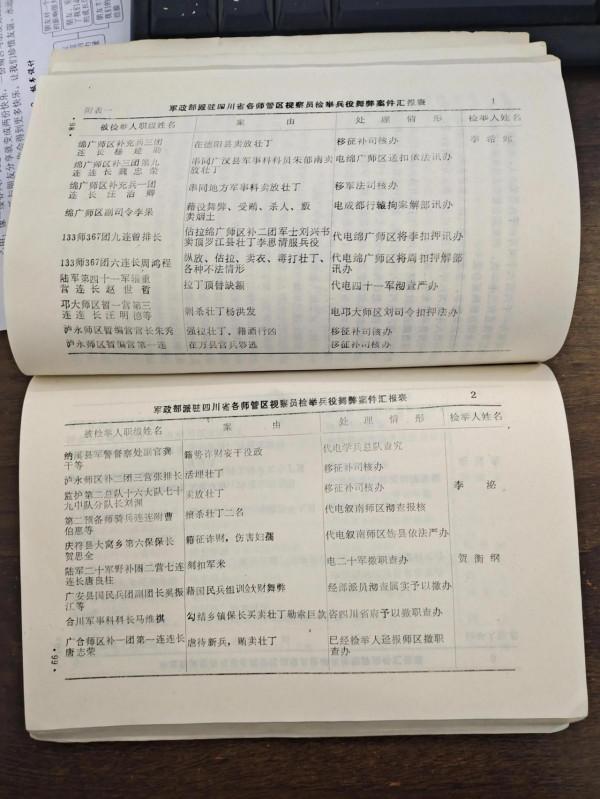 附表一 军政部派驻四川省各师管区视察员检举兵役舞弊案件汇报表 1
被检举人职级姓名 案由 处理情形 检举人姓名
绵广师区补充兵三团 在德阳县卖放壮丁 移征补司核办
连长杨
绵广师区补三团第九 串同广汉县军事科科员朱郁南卖 电绵广师区递扣依法讯办
连连长魏忠荣 放壮丁
绵广师区补充兵一团 串同地方军事科卖放壮丁 移军法司核办
连长汪治卿
绵广师区副司令李杲 藉役舞弊、受贿、杀人、贩 电成都行辕拘案解部讯办
卖烟土
133师367团九连曾排长 估拉绵广师区补二团军士刘兴书 代电绵广师区将李扣押讯办
卖顶罗江县壮丁李恩清服兵役
133师367团六连长周鸿程 纵放、估拉、卖衣、毒打壮丁、 代电绵广师区将周扣押解部
各种不法情形 讯办
陆军第四十一军辎重 拉丁顶替缺额 代电四十一军彻查严办
营连长赵世哲
邛大师区暂一营第三 朝杀壮丁杨洪发 电邛大师区刘司令扣押法办
连连长汪明德等
泸永师区暂编营营长朱秀 强拉壮丁、籍酒行凶 移征补司核办
泸永师区暂编营第一连 在万县官兵夥逃 移征补司核办
·98·
军政部派驻四川省各师管区视察员检举兵役舞弊案件汇报表 2
被检举人职级姓名 案由 处理情形 检举人姓名
纳溪县军警督察处副官龚 籍势诈财妄干役政 代电学兵总队查究
干等
泸永师区补二团三营张排长 活埋壮丁 移征补司核办
监护第二总队十六大队七十 卖放壮丁 移征补司核办 李泌
九中队分队长刘渊
第二预备师骑兵连连附曹 擅杀壮丁二名 代电叙南师区彻查报核
伯惠等
庆符县大窝乡第六保保长 籍征诈财，伤害妇孺 代电叙南师区饬县依法严办
贺思全
陆军二十军野补团二营七连 刻扣军米 电二十军撤职查办 贺衡纲
连长唐良柱
广安县国民兵团副团长奚振 藉国民兵组训敛财舞弊 经部派员彻查属实予以撤办
江等
合川军事科科长马维祺 勾结乡镇保长买卖壮丁勒索巨款 咨四川省府予以撤职查办
广合师区补一团第一连连长 虐待新兵，贿卖壮丁 已经检举人迳报师区撤职
唐志荣 查办
·99·